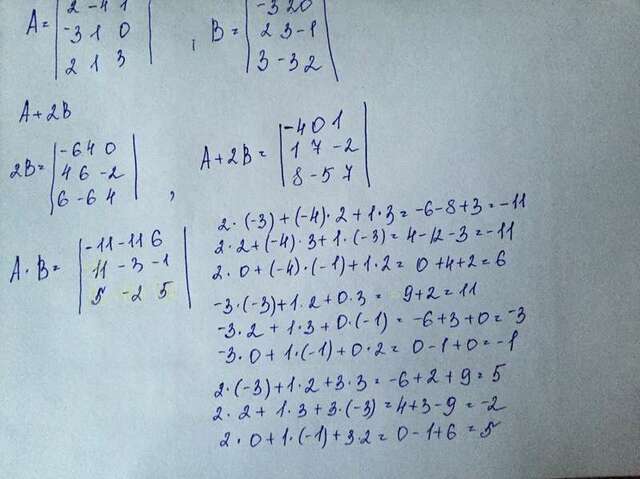 A = | 2 -4 1 |
| -3 1 0 |
| 2 1 3 |
, B = | -3 2 0 |
| 2 3 -1 |
| 3 -3 2 |
A + 2B
2B = | -6 4 0 |
| 4 6 -2 |
| 6 -6 4 | ,
A + 2B = | -4 0 1 |
| 1 7 -2 |
| 8 -5 7 |
A · B = | -11 -11 6 |
| 11 -3 -1 |
| 5 -2 5 |
2 · (-3) + (-4) · 2 + 1 · 3 = -6 - 8 + 3 = -11
2 · 2 + (-4) · 3 + 1 · (-3) = 4 - 12 - 3 = -11
2 · 0 + (-4) · (-1) + 1 · 2 = 0 + 4 + 2 = 6
-3 · (-3) + 1 · 2 + 0 · 3 = 9 + 2 = 11
-3 · 2 + 1 · 3 + 0 · (-1) = -6 + 3 + 0 = -3
-3 · 0 + 1 · (-1) + 0 · 2 = 0 - 1 + 0 = -1
2 · (-3) + 1 · 2 + 3 · 3 = -6 + 2 + 9 = 5
2 · 2 + 1 · 3 + 3 · (-3) = 4 + 3 - 9 = -2
2 · 0 + 1 · (-1) + 3 · 2 = 0 - 1 + 6 = 5